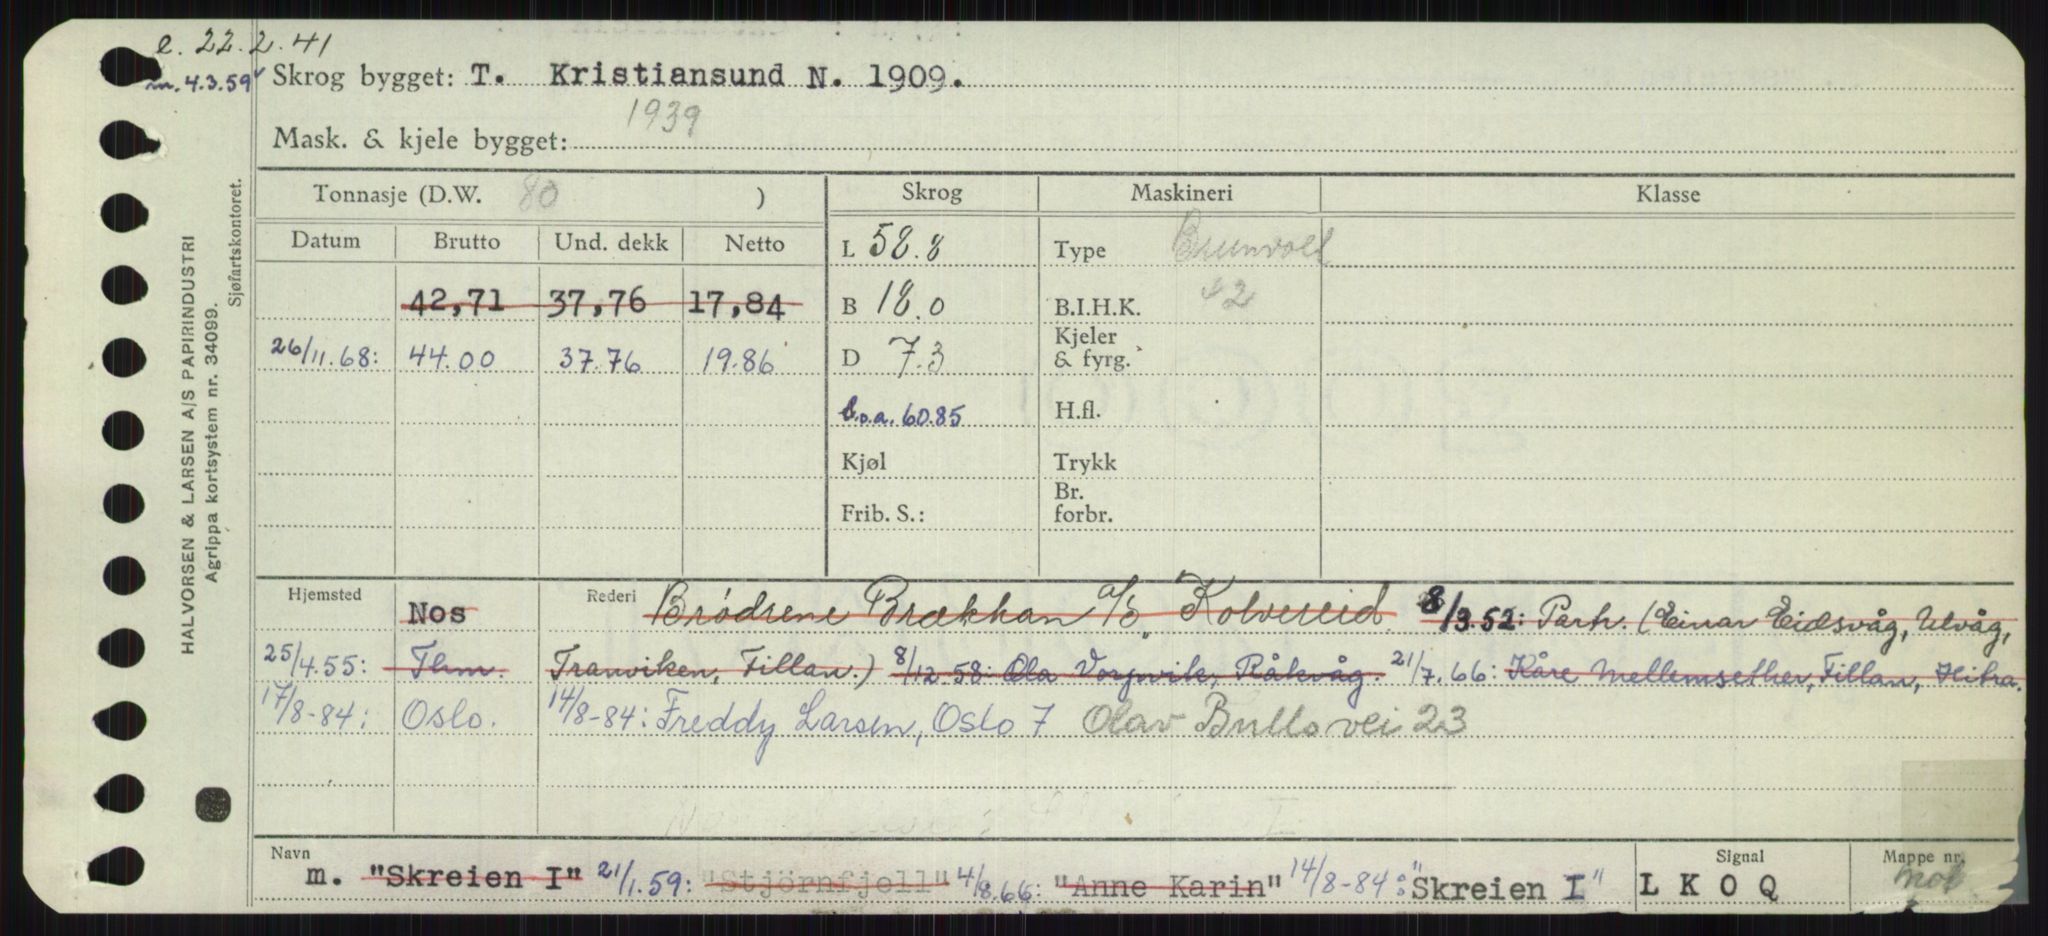 e. 22.2.41
m. 4.3.59
Skrog bygget: T. Kristiansund N. 1909.
Mask. & kjele bygget: 1939
HALVORSEN & LARSEN A/S PAPIRINDUSTRI
Agrippa kortsystem nr. 34099.
Sjøfartskontoret.
Tonnasje (D.W. 80 ) Skrog Maskineri Klasse
Datum Brutto Und. dekk Netto L 58.8 Type Brunvoll
42,71 37,76 17,84 B 18.0 B.I.H.K. 42
26/11.68: 44.00 37.76 19.86 D 7.3 Kjeler & fyrg.
l.o.a. 60.85 H.fl.
Kjøl Trykk
Frib. S.: Br. forbr.
Hjemsted Nos Rederi Brødrene Brækhan a/s, Kolvereid 8/3.52: Parh. (Einar Eidsvåg, Ulvåg,
25/4.55: Thm. Tranviken, Fillan.) 8/12.58: Ola Vorpvik, Råkvåg. 21/7.66: Kåre Mellemsether, Fillan, Hitra.
17/8-84: Oslo. 14/8-84: Freddy Larsen, Oslo 7 Olav Bulls vei 23
Navn Signal Mappe nr.
m. "Skreien I" 21/1.59: "Stjörnfjell" 4/8.66: "Anne Karin" 14/8-84: "Skreien I" L K O Q mot